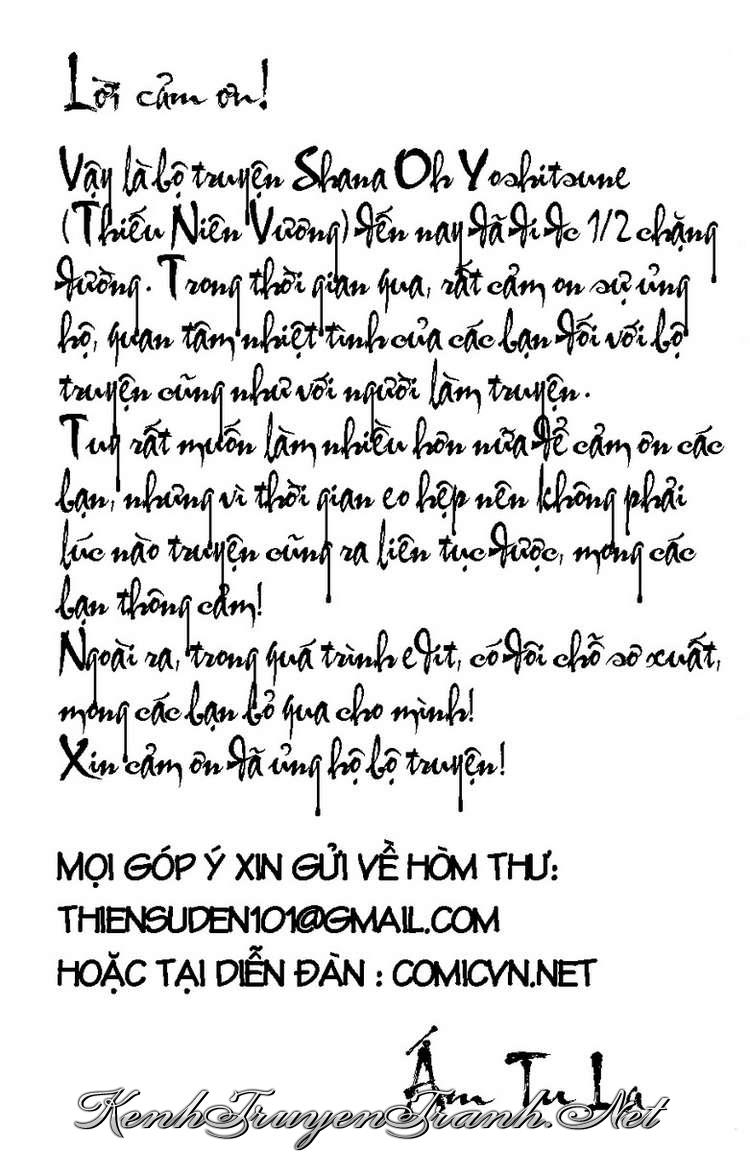 Lời cảm ơn!
Vậy là bộ truyện Shana Oh Yoshitsune
(Thiếu Niên Vương) đến nay đã đi đc 1/2 chặng
đường. Trong thời gian qua, rất cảm ơn sự ủng
hộ, quan tâm nhiệt tình của các bạn đối với bộ
truyện cũng như với người làm truyện.
Tuy rất muốn làm nhiều hơn nữa để cảm ơn các
bạn, nhưng vì thời gian eo hẹp nên không phải
lúc nào truyện cũng ra liên tục được, mong các
bạn thông cảm!
Ngoài ra, trong quá trình edit, có đôi chỗ sơ xuất,
mong các bạn bỏ qua cho mình!
Xin cảm ơn đã ủng hộ bộ truyện!
MỌI GÓP Ý XIN GỬI VỀ HÒM THƯ:
THIENSUDEN101@GMAIL.COM
HOẶC TẠI DIỄN ĐÀN : COMICVN.NET
Ám Tu La
KenhTruyenTranh.Net